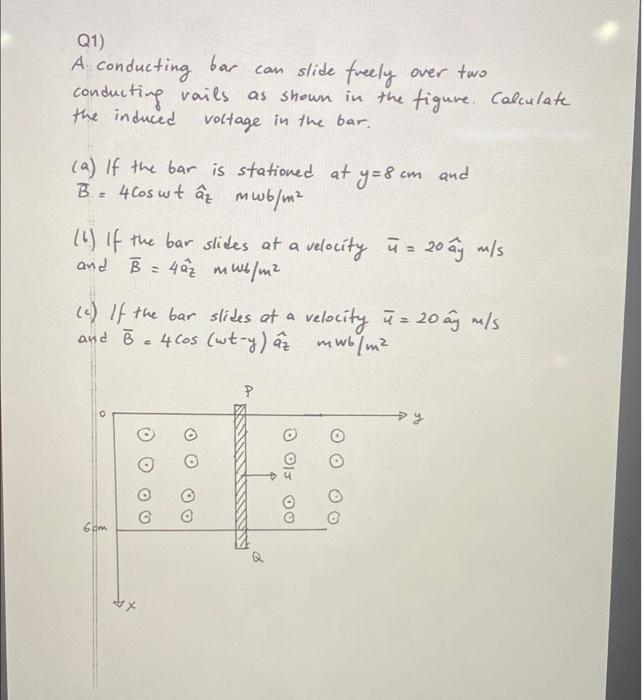 Q1)
A conducting bar can slide freely over two
conducting rails as shown in the figure. Calculate
the induced voltage in the bar.
(a) If the bar is stationed at y=8 cm and
B̄ = 4 cos wt âz mwb/m²
(b) If the bar slides at a velocity ū = 20 ây m/s
and B̄ = 4 âz mwb/m²
(c) If the bar slides at a velocity ū = 20 ây m/s
and B̄ = 4 cos (wt-y) âz mwb/m²
P
0
y
ū
6cm
Q
x